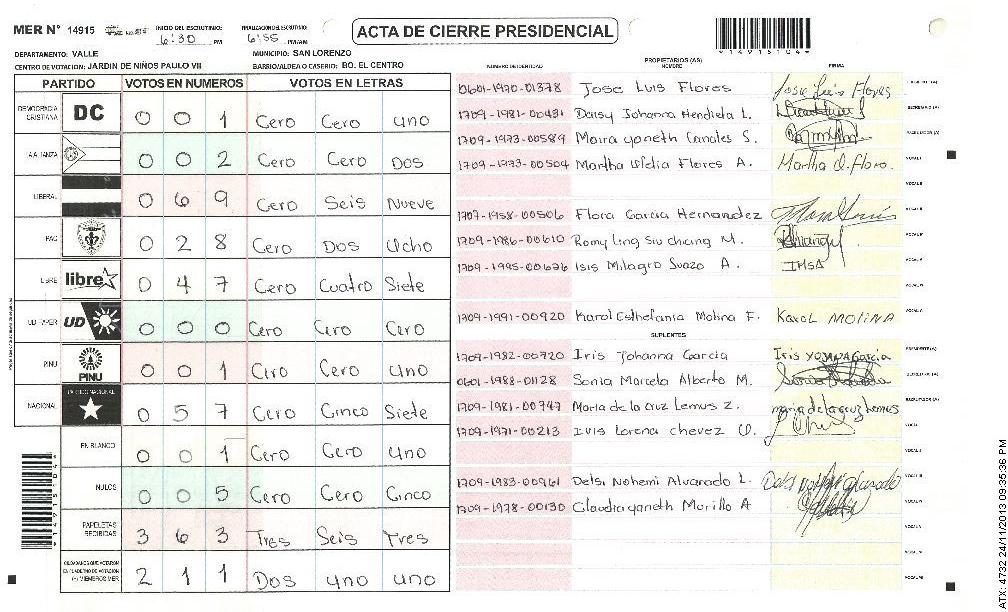 MER Nº 14915 INICIO DEL ESCRUTINIO: 6:30 PM FINALIZACIÓN DEL ESCRUTINIO: 6:55 PM/AM
ACTA DE CIERRE PRESIDENCIAL
149151041
DEPARTAMENTO: VALLE MUNICIPIO: SAN LORENZO
CENTRO DE VOTACIÓN: JARDIN DE NIÑOS PAULO VII BARRIO/ALDEA O CASERIO: BO. EL CENTRO
PARTIDO VOTOS EN NUMEROS VOTOS EN LETRAS
DEMOCRACIA CRISTIANA DC 0 0 1 Cero Cero uno
ALIANZA 0 0 2 Cero Cero Dos
LIBERAL 0 6 9 Cero Seis Nueve
PAC 0 2 8 Cero Dos Ocho
LIBRE libre 0 4 7 Cero Cuatro Siete
UD-FAPER UD 0 0 0 Cero Cero Cero
PINU PINU 0 0 1 Cero Cero Uno
NACIONAL PARTIDO NACIONAL 0 5 7 Cero Cinco Siete
EN BLANCO 0 0 1 Cero Cero uno
NULOS 0 0 5 Cero Cero Cinco
PAPELETAS RECIBIDAS 3 6 3 Tres Seis Tres
CIUDADANOS QUE VOTARON EN CUADERNO DE VOTACION (+) MIEMBROS MER 2 1 1 Dos uno uno
PROPIETARIOS (AS)
NÚMERO DE IDENTIDAD NOMBRE FIRMA
0601-1970-01378 Jose Luis Flores Jose Luis Flores
1709-1981-00431 Daisy Johanna Hendieta L. SECRETARIO (A)
1709-1973-00589 Maira yaneth Canales S. ESCRUTADOR (A)
1709-1973-00504 Martha Ofelia Flores A. Martha O. Flores. VOCAL I
VOCAL II
1707-1958-00506 Flora Garcia Hernandez
1709-1986-00610 Romy Ling Siu chang M.
1709-1995-00676 Isis Milagro Suazo A. IMSA
1709-1991-00920 Karol Esthefania Molina F. Karol MOLINA
SUPLENTES
1709-1982-00720 Iris Johanna Garcia Iris YOJANA Garcia PRESIDENTE (A)
0601-1988-01128 Sonia Marcela Alberto M. SECRETARIO (A)
1709-1981-00747 Maria de la cruz Lemus Z. maria de la cruz lemus ESCRUTADOR (A)
1709-1971-00213 Ivis Lorena chevez O. VOCAL I
1709-1983-00961 Delsi Nohemi Alvarado L.
1709-1978-00130 Claudia yaneth Morillo A
ATX: 4732 24/11/2013 09:35:36 PM